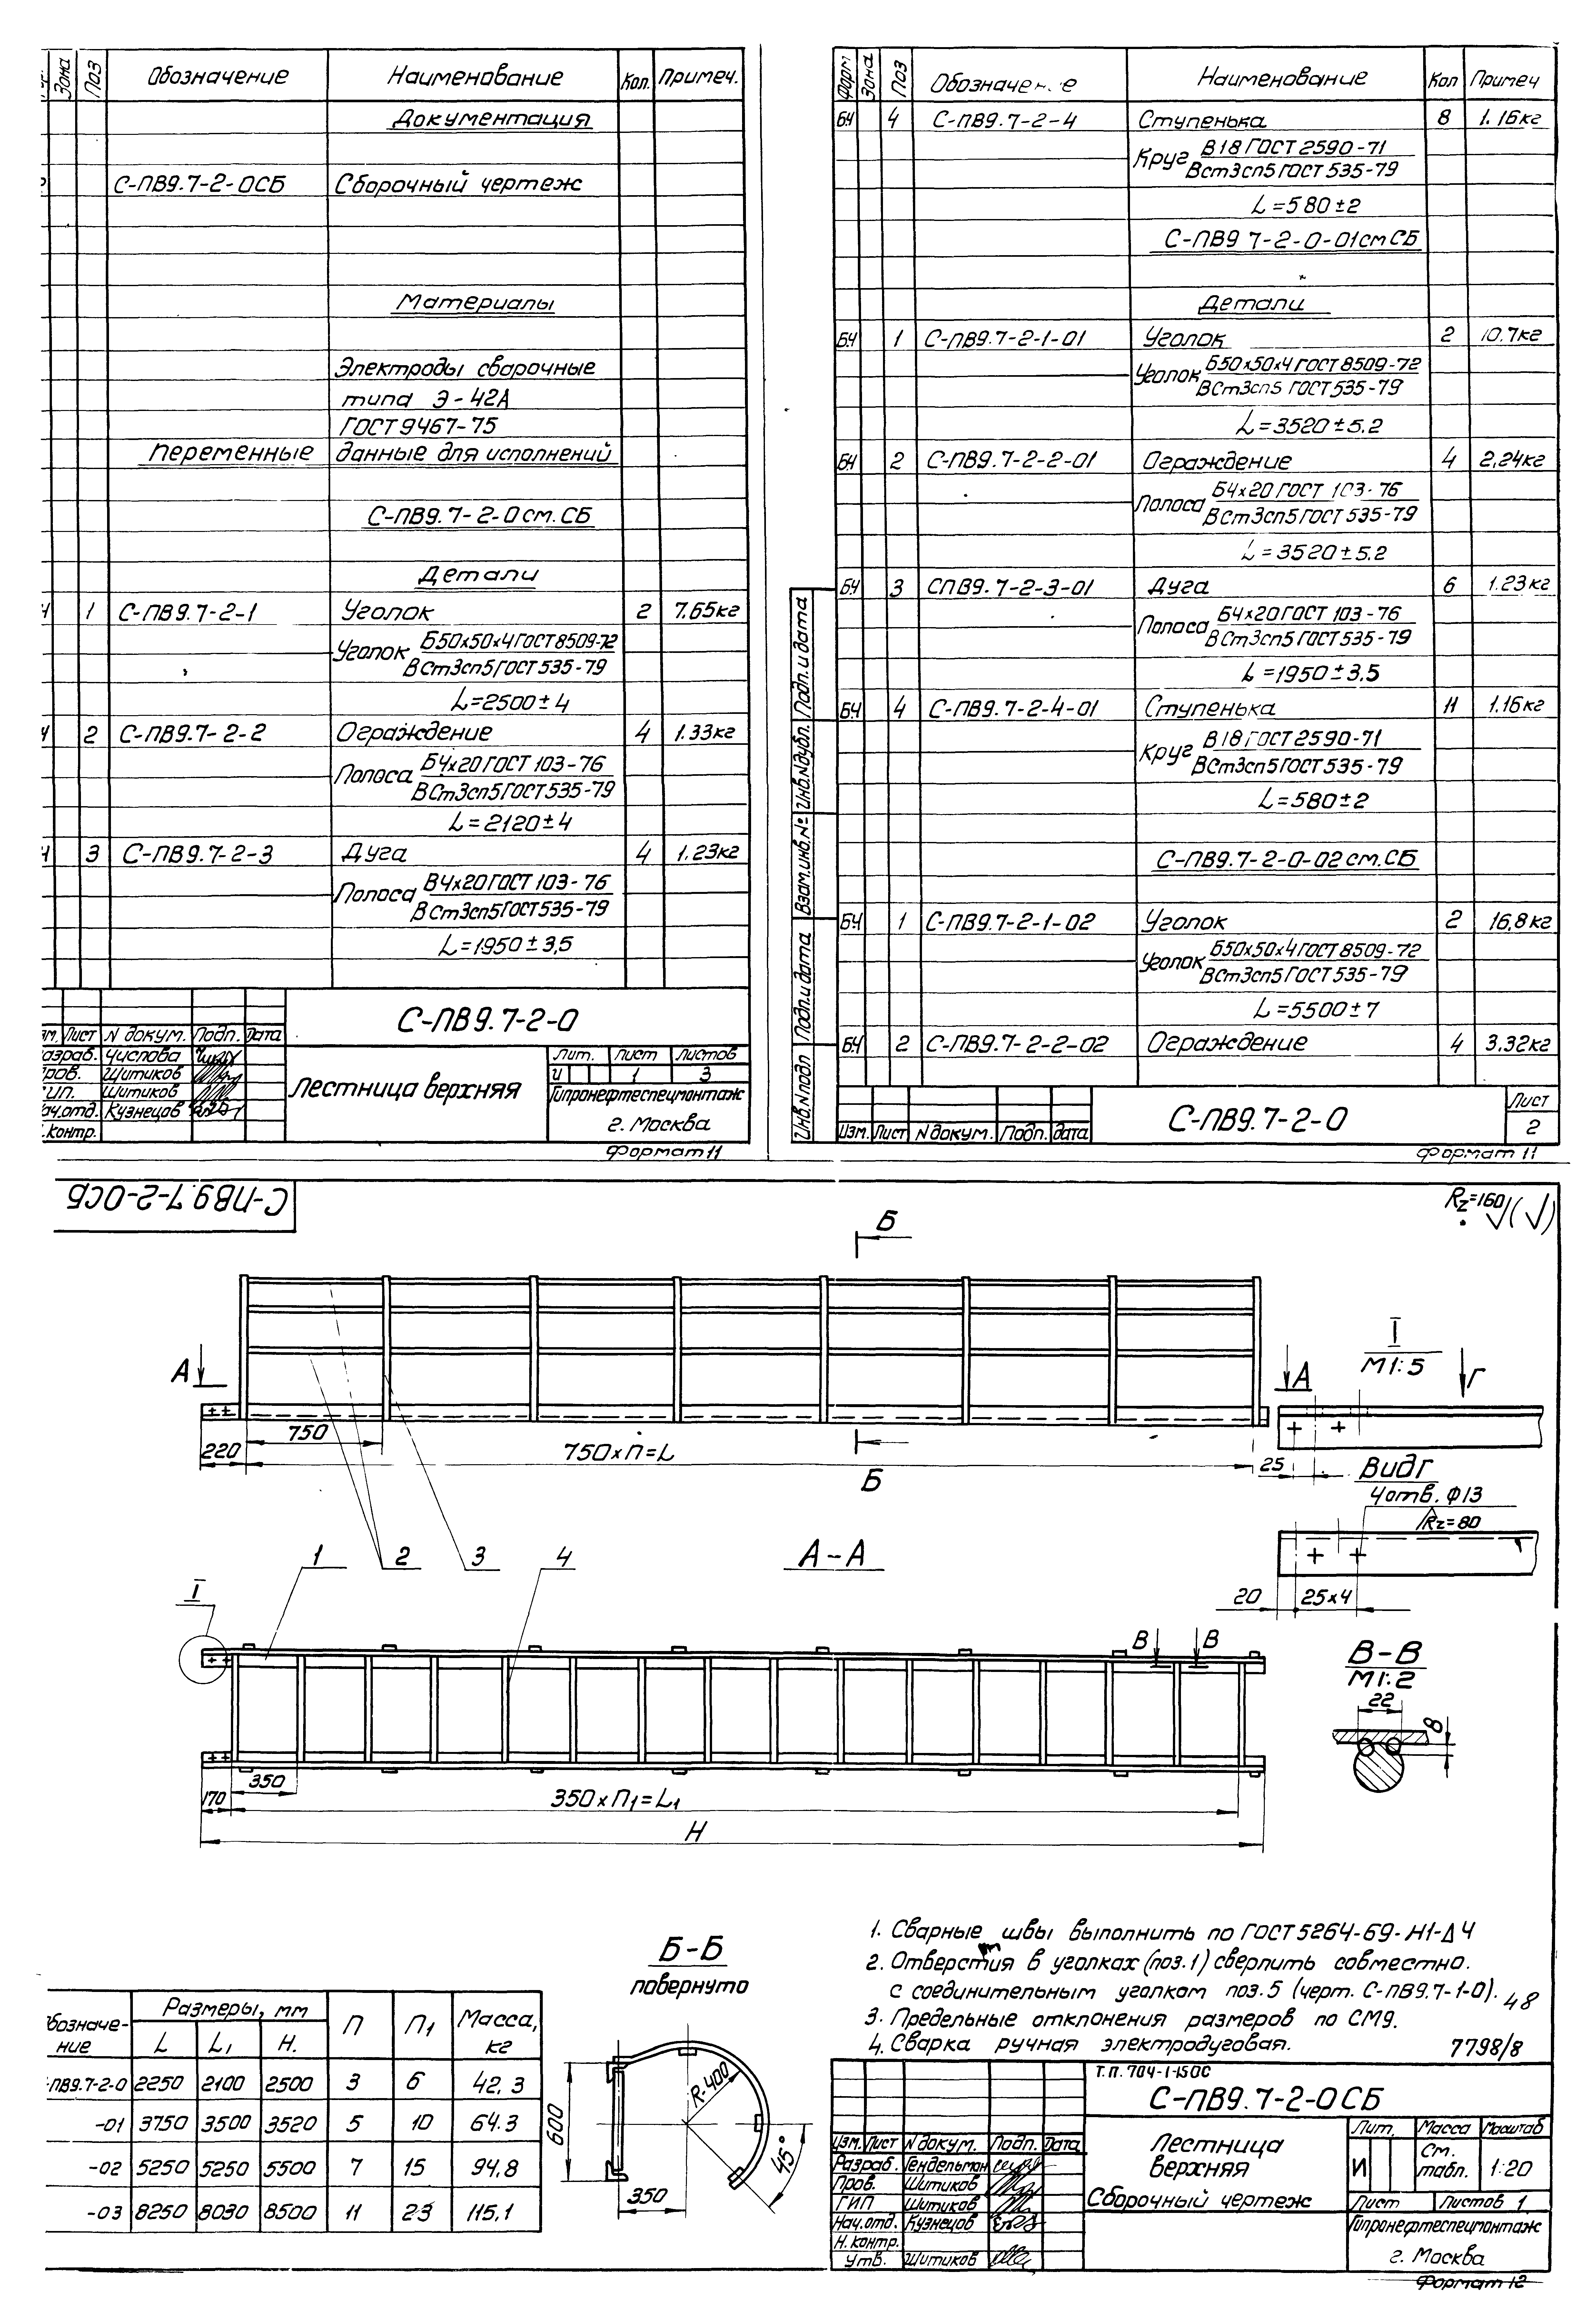 Зона Поз Обозначение Наименование Кол. Примеч.
Документация
С-ПВ9.7-2-0СБ Сборочный чертеж
Материалы
Электроды сварочные
типа Э-42А
ГОСТ 9467-75
Переменные данные для исполнений
С-ПВ9.7-2-0 см. СБ
Детали
1 С-ПВ9.7-2-1 Уголок 2 7,65кг
Уголок Б50х50х4 ГОСТ 8509-72
ВСт3сп5 ГОСТ 535-79
L=2500±4
2 С-ПВ9.7-2-2 Ограждение 4 1.33кг
Полоса Б4х20 ГОСТ 103-76
ВСт3сп5 ГОСТ 535-79
L=2120±4
3 С-ПВ9.7-2-3 Дуга 4 1,23кг
Полоса В4х20 ГОСТ 103-76
ВСт3сп5 ГОСТ 535-79
L=1950±3,5
С-ПВ9.7-2-0
Лист N докум. Подп. Дата
Числова
Шитиков
Шитиков
Кузнецов
Лестница верхняя
Лит. Лист Листов
И 1 3
Гипронефтеспецмонтаж
г. Москва
Формат 11
Форм Зона Поз Обозначение Наименование Кол Примеч
БЧ 4 С-ПВ9.7-2-4 Ступенька 8 1.16кг
Круг В18 ГОСТ 2590-71
ВСт3сп5 ГОСТ 535-79
L=580±2
С-ПВ9 7-2-0-01 см СБ
Детали
БЧ 1 С-ПВ9.7-2-1-01 Уголок 2 10.7кг
Уголок Б50х50х4 ГОСТ 8509-72
ВСт3сп5 ГОСТ 535-79
L=3520±5.2
БЧ 2 С-ПВ9.7-2-2-01 Ограждение 4 2,24кг
Полоса Б4х20 ГОСТ 103-76
ВСт3сп5 ГОСТ 535-79
L=3520±5.2
БЧ 3 СПВ9.7-2-3-01 Дуга 6 1.23кг
Полоса Б4х20 ГОСТ 103-76
ВСт3сп5 ГОСТ 535-79
L=1950±3,5
БЧ 4 С-ПВ9.7-2-4-01 Ступенька 11 1.16кг
Круг В18 ГОСТ 2590-71
ВСт3сп5 ГОСТ 535-79
L=580±2
С-ПВ9.7-2-0-02 см. СБ
БЧ 1 С-ПВ9.7-2-1-02 Уголок 2 16,8кг
Уголок Б50х50х4 ГОСТ 8509-72
ВСт3сп5 ГОСТ 535-79
L=5500±7
БЧ 2 С-ПВ9.7-2-2-02 Ограждение 4 3,32кг
Инв.N подл Подп. и дата Взам.инв.№ Инв.Nдубл. Подп. и дата
Изм. Лист N докум. Подп. дата
С-ПВ9.7-2-0
Лист
2
Формат 11
С-ПВ9.7-2-0СБ
Rz=160
Б
А А
750
220
750×n=L
Б
I
М1:5
Г
25
Вид Г
4 отв. Ф13
Rz=80
20 25×4
1 2 3 4
А-А
I
В В
350
170
350×n1=L1
Н
В-В
М1:2
22
8
1. Сварные швы выполнить по ГОСТ 5264-69-Н1-Δ4
2. Отверстия в уголках (поз.1) сверлить совместно.
с соединительным уголком поз.5 (черт. С-ПВ9.7-1-0).
48
3. Предельные отклонения размеров по СМ9.
4. Сварка ручная электродуговая.
7798/8
Размеры, мм n n1 Масса, кг
L L1 Н.
-ПВ9.7-2-0 2250 2100 2500 3 6 42,3
-01 3750 3500 3520 5 10 64.3
-02 5250 5250 5500 7 15 94,8
-03 8250 8030 8500 11 23 115,1
Б-Б
повернуто
R-400
600
45°
350
Т.П. 704-1-150С
С-ПВ9.7-2-0СБ
Изм. Лист N докум. Подп. Дата
Разраб. Гендельман
Пров. Шитиков
ГИП Шитиков
Нач.отд. Кузнецов
Н.контр.
Утв. Шитиков
Лестница
верхняя
Сборочный чертеж
Лит. Масса Масштаб
И См. табл. 1:20
Лист Листов 1
Гипронефтеспецмонтаж
г. Москва
Формат 12